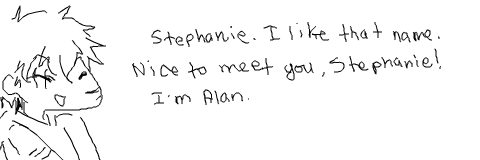 Stephanie. I like that name.
Nice to meet you, Stephanie!
I'm Alan.